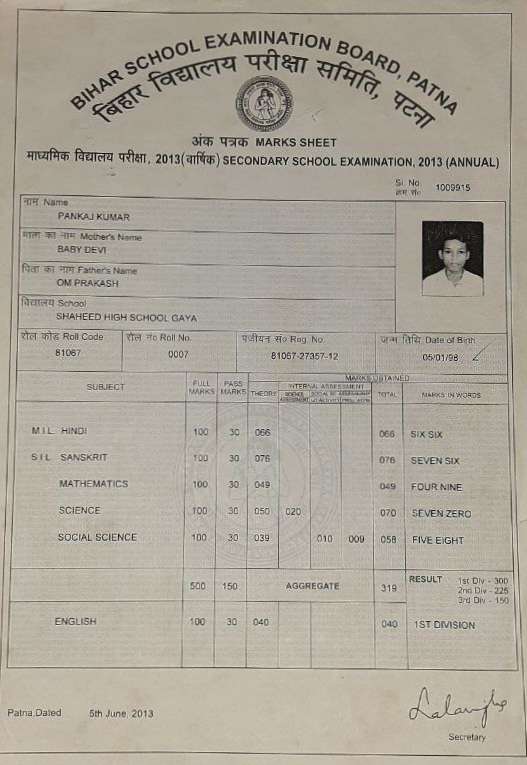 BIHAR SCHOOL EXAMINATION BOARD, PATNA
बिहार विद्यालय परीक्षा समिति, पटना
अंक पत्रक MARKS SHEET
माध्यमिक विद्यालय परीक्षा, 2013 (वार्षिक) SECONDARY SCHOOL EXAMINATION, 2013 (ANNUAL)
Sl. No.
क्रम सं० 1009915
नाम Name
PANKAJ KUMAR
माता का नाम Mother's Name
BABY DEVI
पिता का नाम Father's Name
OM PRAKASH
विद्यालय School
SHAHEED HIGH SCHOOL GAYA
रोल कोड Roll Code रोल नं० Roll No. पंजीयन सं० Reg. No. जन्म तिथि Date of Birth
81067 0007 81067-27357-12 05/01/98
SUBJECT FULL MARKS PASS MARKS THEORY INTERNAL ASSESSMENT MARKS OBTAINED TOTAL MARKS IN WORDS
SCIENCE ASSESSMENT
M I L HINDI 100 30 066 066 SIX SIX
S I L SANSKRIT 100 30 076 076 SEVEN SIX
MATHEMATICS 100 30 049 049 FOUR NINE
SCIENCE 100 30 050 020 070 SEVEN ZERO
SOCIAL SCIENCE 100 30 039 010 009 058 FIVE EIGHT
500 150 AGGREGATE 319 RESULT 1st Div - 300
2nd Div - 225
3rd Div - 150
ENGLISH 100 30 040 040 1ST DIVISION
Patna,Dated 5th June, 2013
Secretary